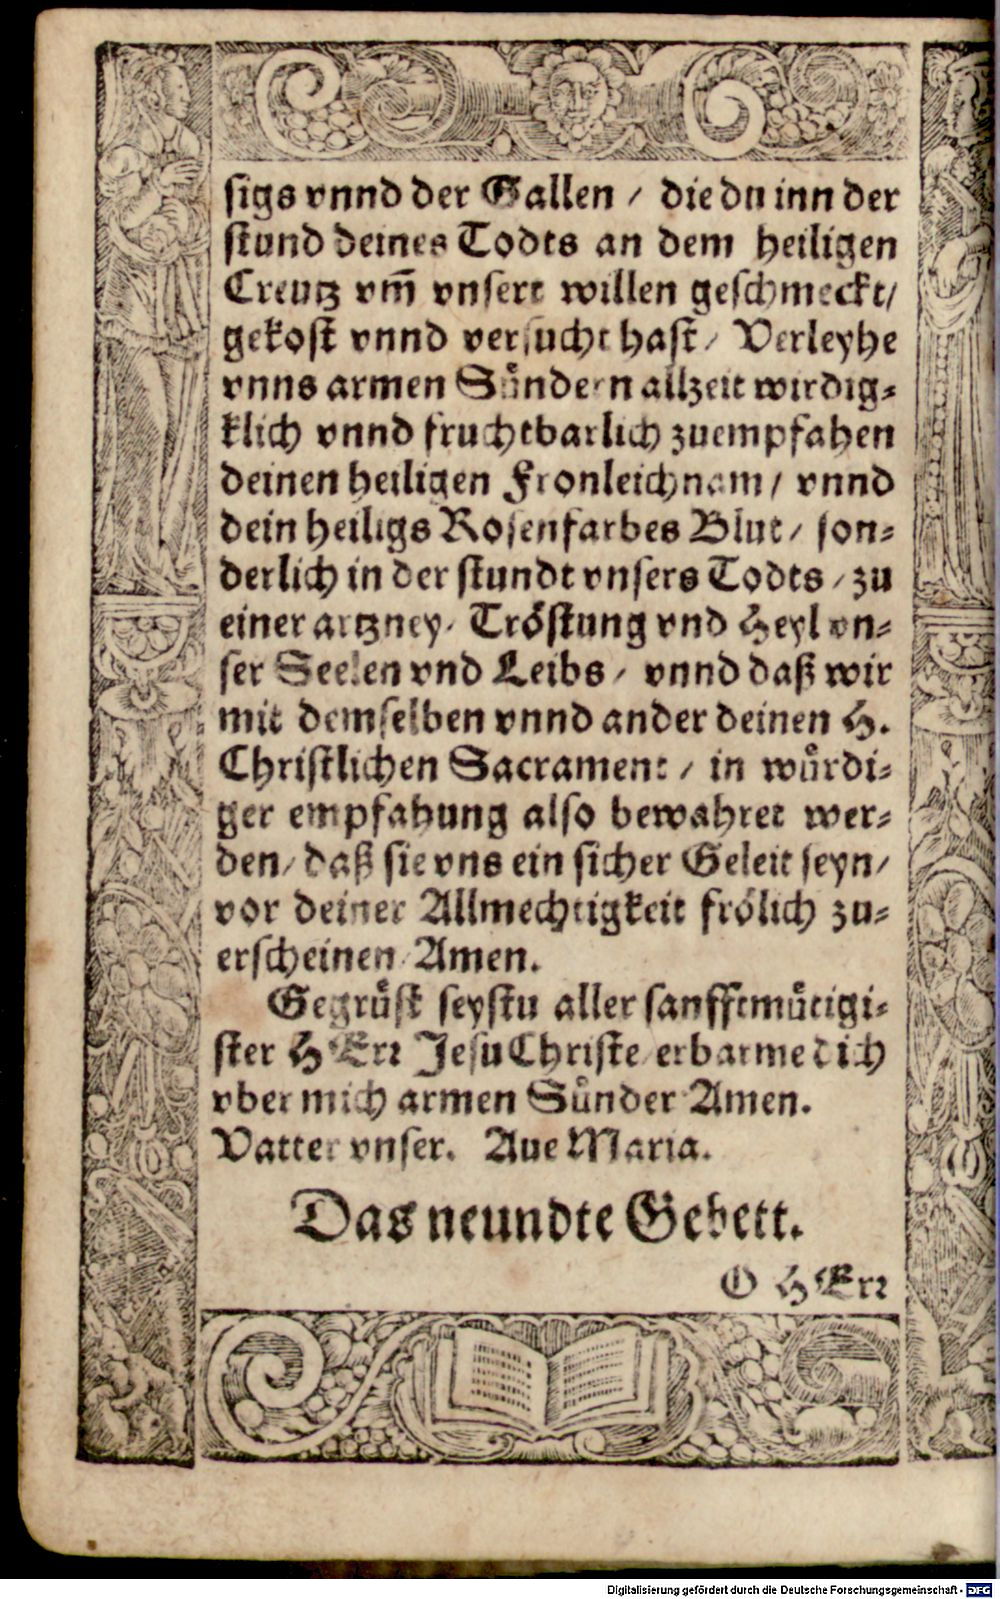 sigs vnnd der Gallen / die du inn der
stund deines Todts an dem heiligen
Creutz vm̃ vnsert willen geschmeckt/
gekost vnnd versucht hast/ Verleyhe
vnns armen Suͤndern allzeit wirdig⸗
klich vnnd fruchtbarlich zuempfahen
deinen heiligen Fronleichnam/ vnnd
dein heiligs Rosenfarbes Blut/ son⸗
derlich in der stundt vnsers Todts/ zu
einer artzney/ Troͤstung vnd Heyl vn⸗
ser Seelen vnd Leibs/ vnnd daß wir
mit demselben vnnd ander deinen H.
Christlichen Sacrament / in wuͤrdi⸗
ger empfahung also bewahret wer⸗
den/ daß sie vns ein sicher Geleit seyn/
vor deiner Allmechtigkeit froͤlich zu⸗
erscheinen/ Amen.
Gegruͤst seystu aller sanfftmuͤtigi⸗
ster HErr Jesu Christe/ erbarme dich
vber mich armen Suͤnder Amen.
Vatter vnser. Aue Maria.
Das neundte Gebett.
O HErr
Digitalisierung gefördert durch die Deutsche Forschungsgemeinschaft - DFG